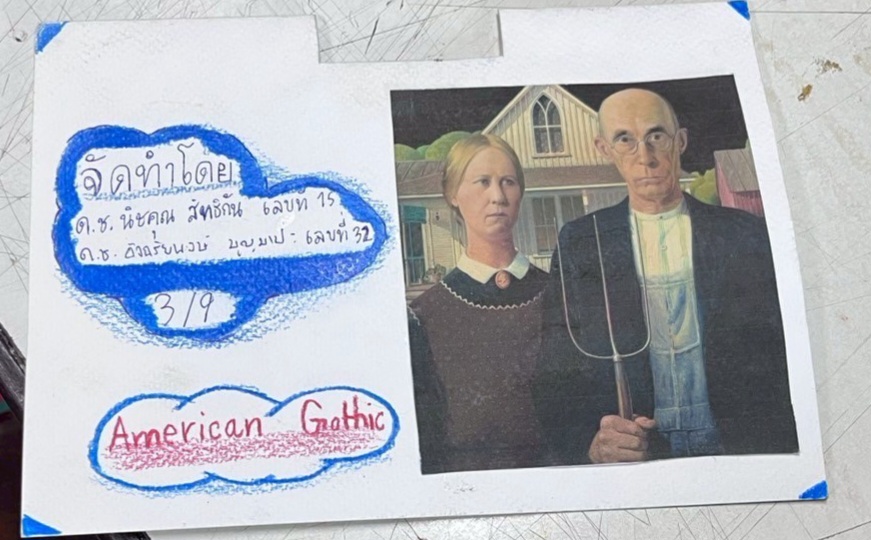 จัดทำโดย
ด.ช. นิชคุณ สิทธิกัน เลขที่ 15
ด.ช. เลขที่ 32
3/9
American Gothic